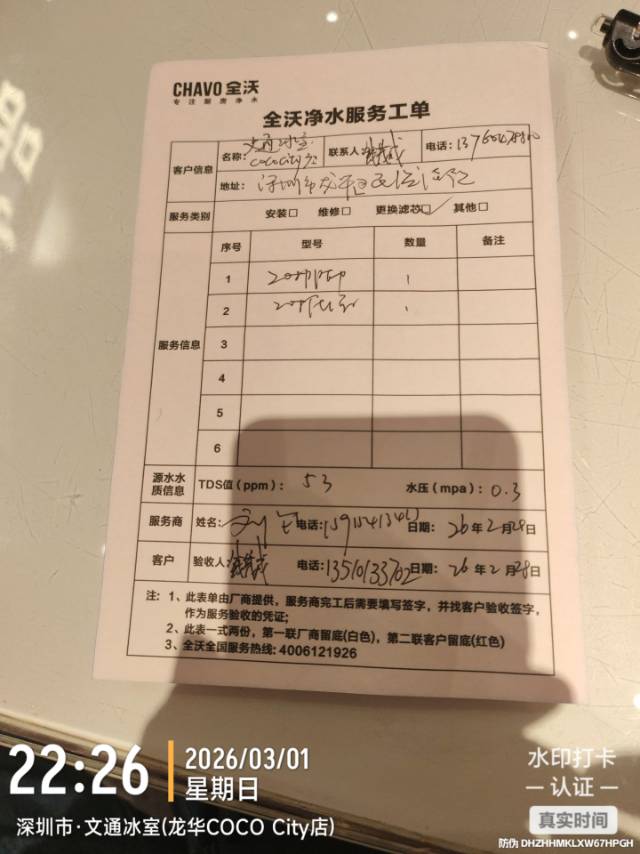 CHAVO 全沃
专注厨房净水
全沃净水服务工单
客户信息
名称: 文通冰室 COCOCity店 联系人: 电话:
地址: 深圳市龙华区
服务类别 安装□ 维修□ 更换滤芯□✓ 其他□
服务信息
序号 型号 数量 备注
1 1
2 1
3
4
5
6
源水水质信息 TDS值(ppm): 53 水压(mpa): 0.3
服务商 姓名: 刘 电话: 日期: 26年2月28日
客户 验收人: 电话:13510133702 日期: 26年2月28日
注: 1、此表单由厂商提供，服务商完工后需要填写签字，并找客户验收签字，
作为服务验收的凭证;
2、此表一式两份，第一联厂商留底(白色)，第二联客户留底(红色)
3、全沃全国服务热线: 4006121926
22:26
2026/03/01
星期日
深圳市·文通冰室(龙华COCO City店)
水印打卡
认证
真实时间
防伪 DHZHHMKLXW67HPGH